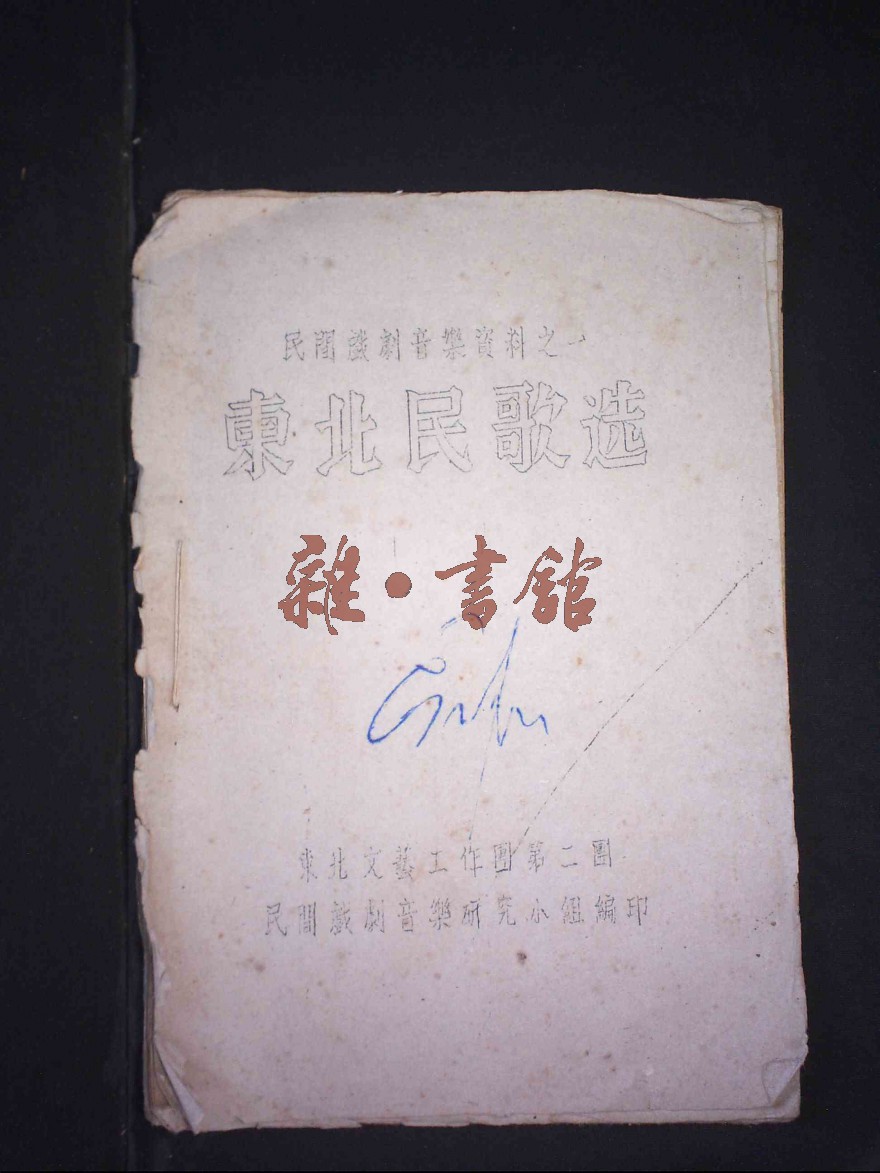 民間戲劇音樂資料之一
東北民歌选
雜·書館
東北文藝工作團第二團
民間戲劇音樂研究小組編印